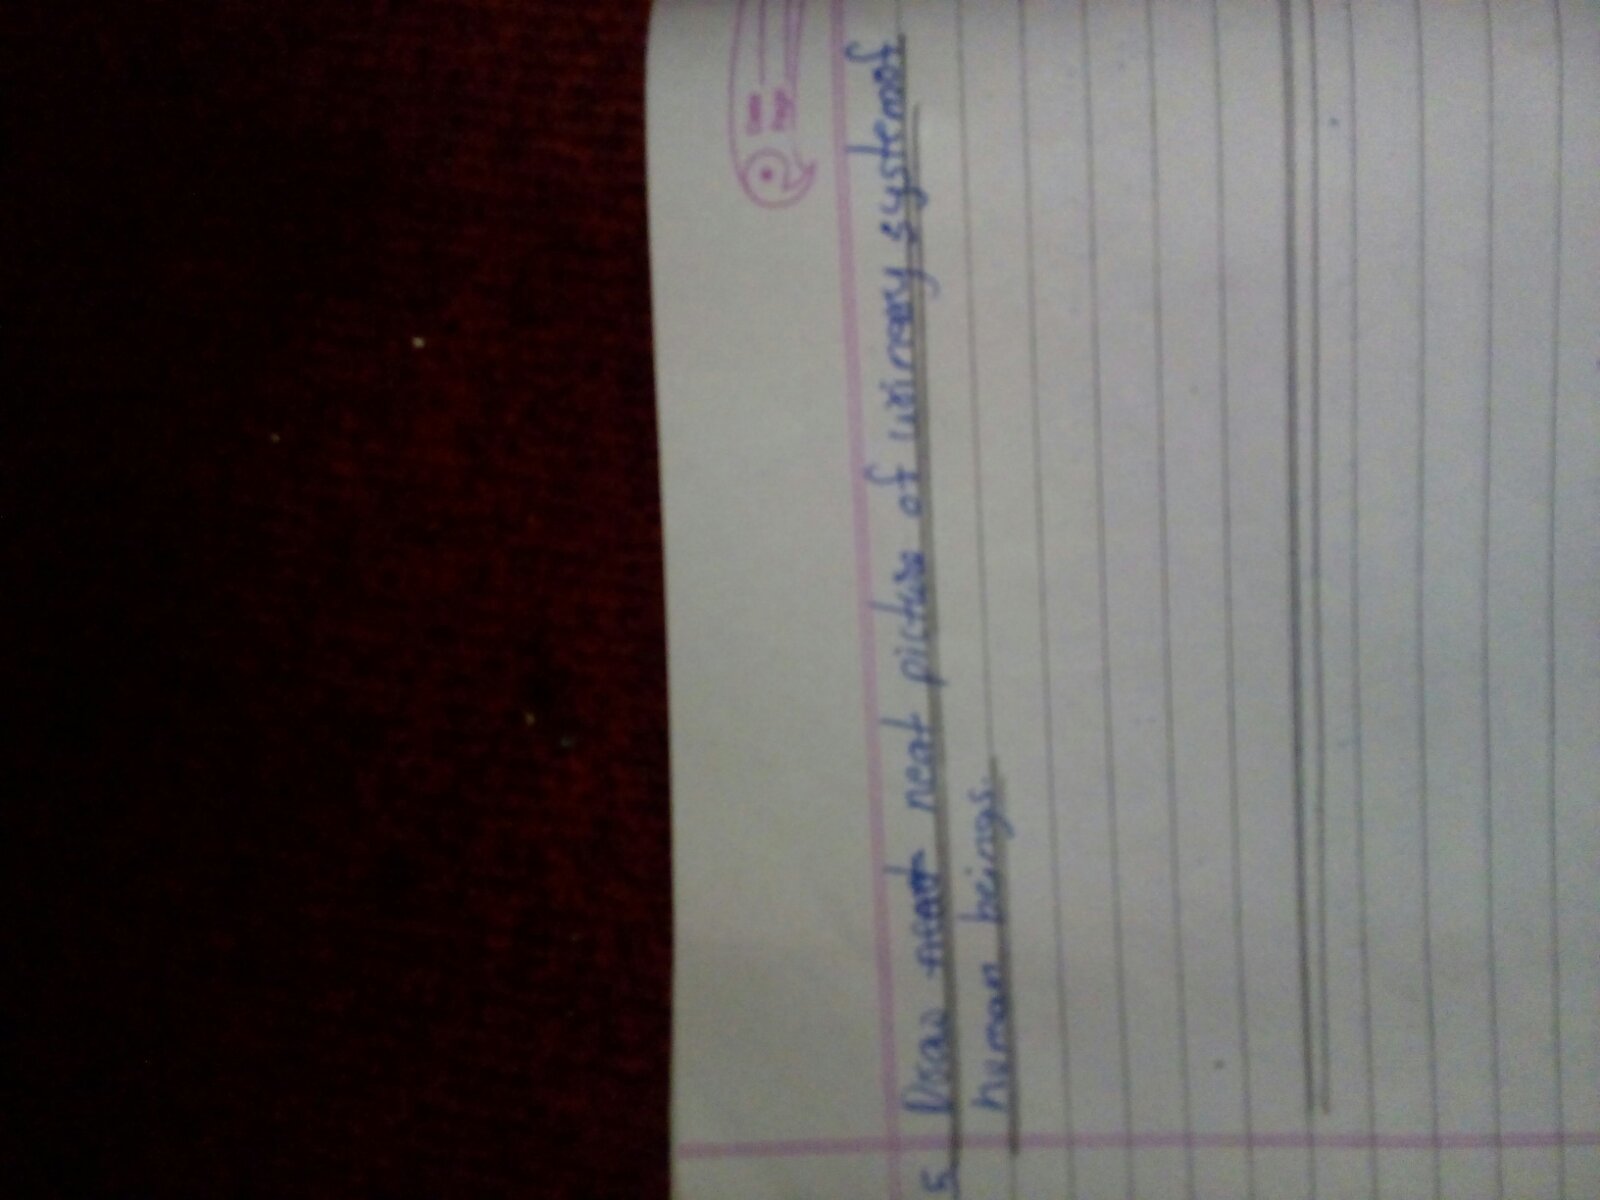 5 Draw neat neat picture of urinary system of
human beings.